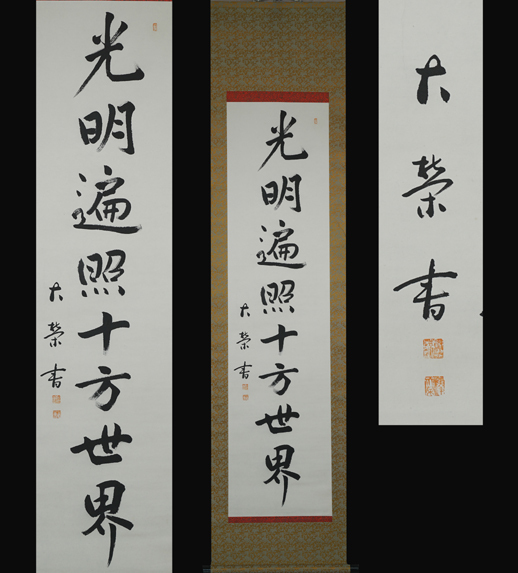 光明遍照十方世界
大榮書
光明遍照十方世界
大榮書
大榮書